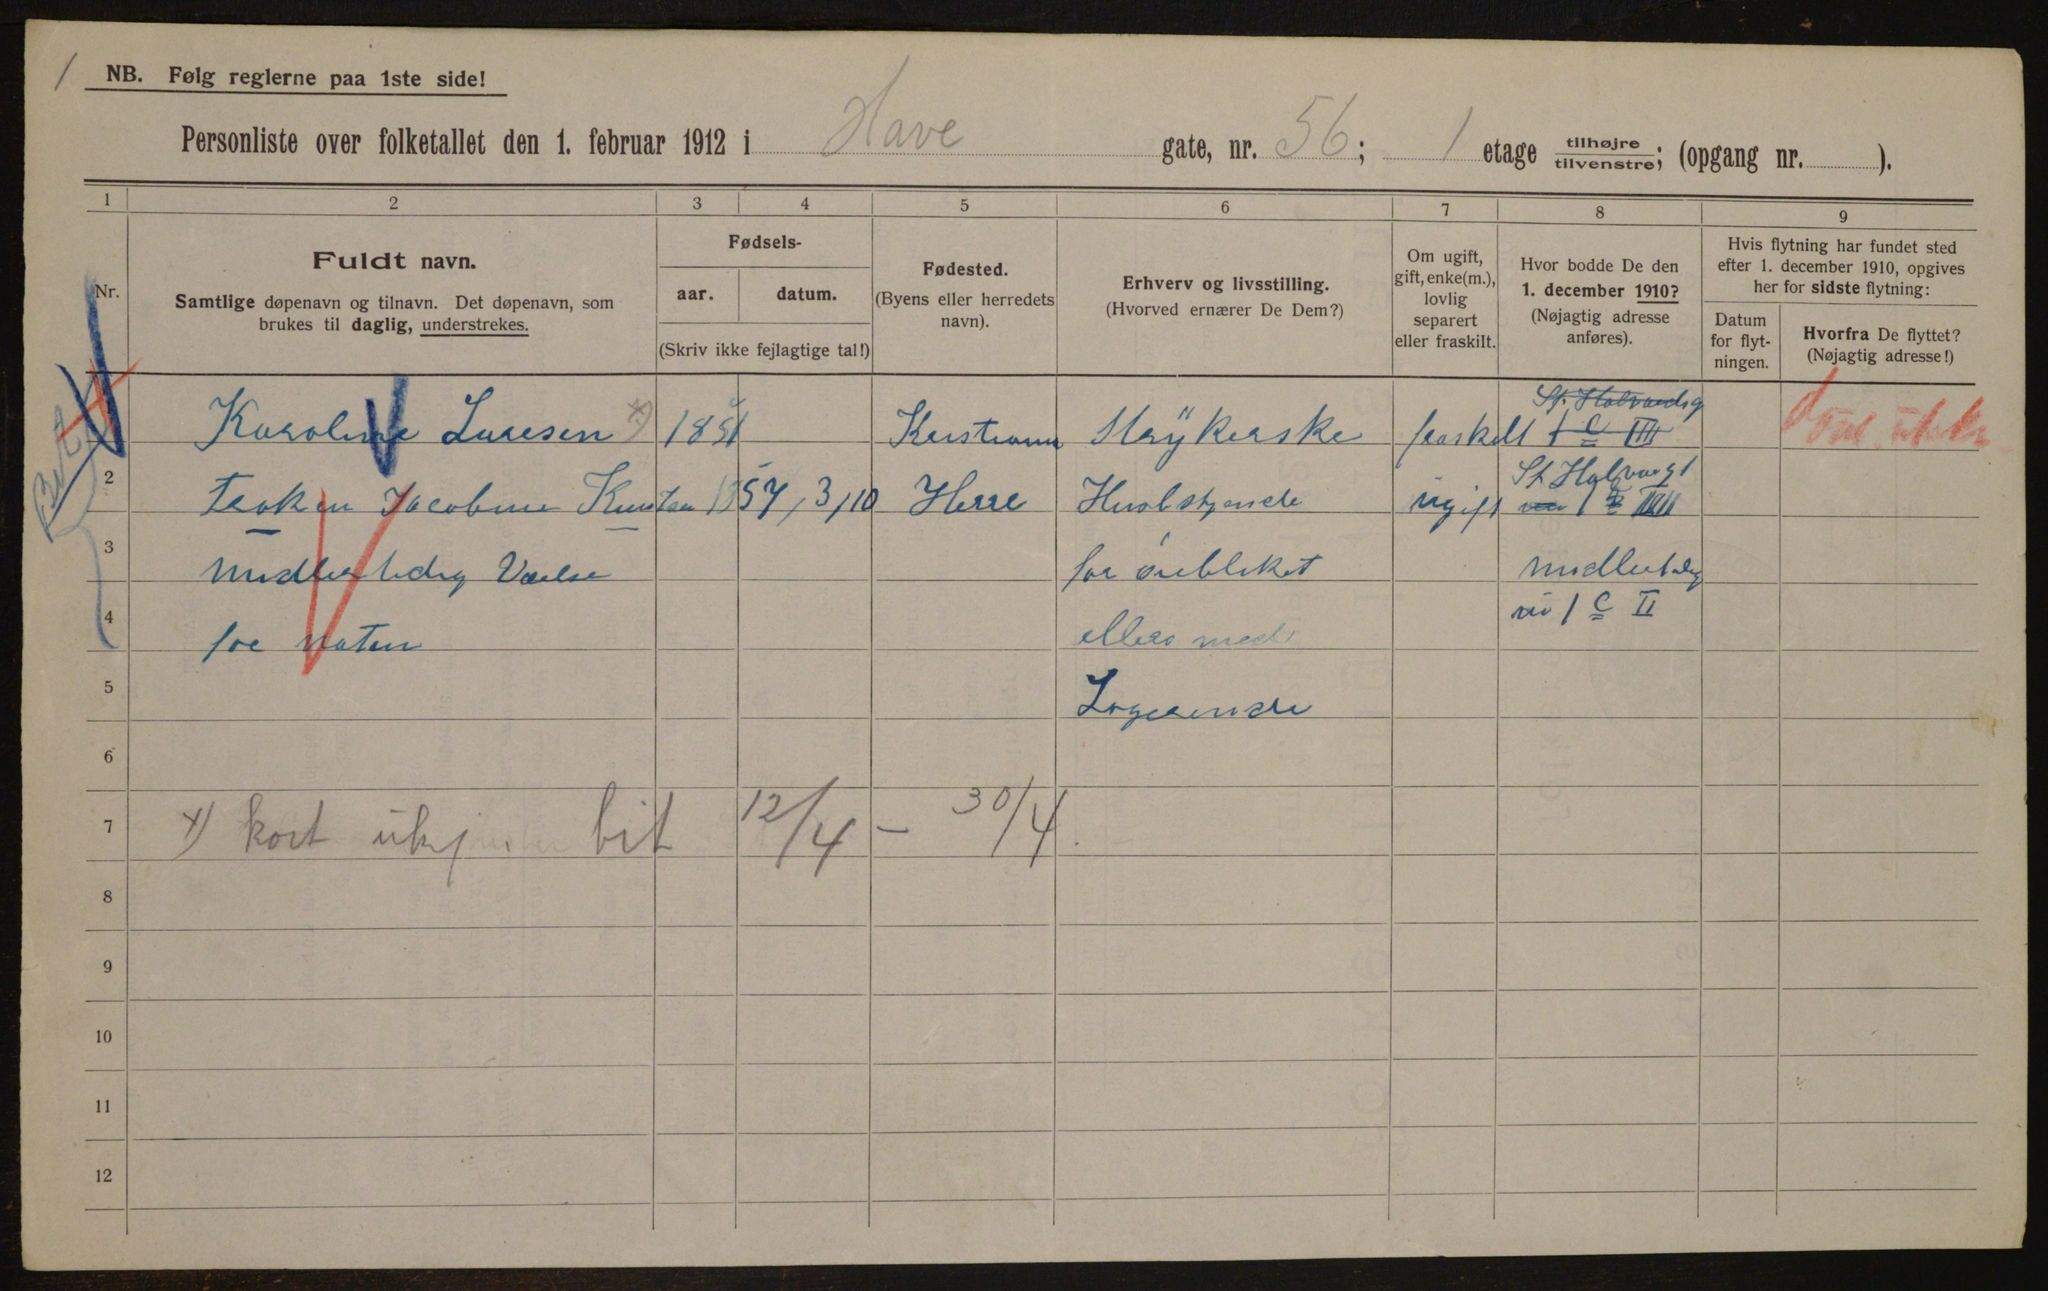 1
NB. Følg reglerne paa 1ste side!
Personliste over folketallet den 1. februar 1912 i Have gate, nr. 56; 1 etage tilhøjre/tilvenstre; (opgang nr. ).
1 2 3 4 5 6 7 8 9
Nr.
Fuldt navn.
Samtlige døpenavn og tilnavn. Det døpenavn, som
brukes til daglig, understrekes.
Fødsels-
aar. datum.
(Skriv ikke fejlagtige tal!)
Fødested.
(Byens eller herredets
navn).
Erhverv og livsstilling.
(Hvorved ernærer De Dem?)
Om ugift,
gift, enke(m.),
lovlig
separert
eller fraskilt.
Hvor bodde De den
1. december 1910?
(Nøjagtig adresse
anføres).
Hvis flytning har fundet sted
efter 1. december 1910, opgives
her for sidste flytning:
Datum
for flyt-
ningen.
Hvorfra De flyttet?
(Nøjagtig adresse!)
Karoline Larsen x) 1851 Kristiania Strykerske fraskilt St. Halvardsg 1 C III
2 Frøken Jacobine Knutsen 1857, 3/10 Herre ugift St Halvargt 1
3 midlertidig Værelse for øiebliket midlertidig
4 for naten ellers med 1 C II
5 Logerende
6
7 x) kort ukjendt bit 12/4 – 30/4
8
9
10
11
12